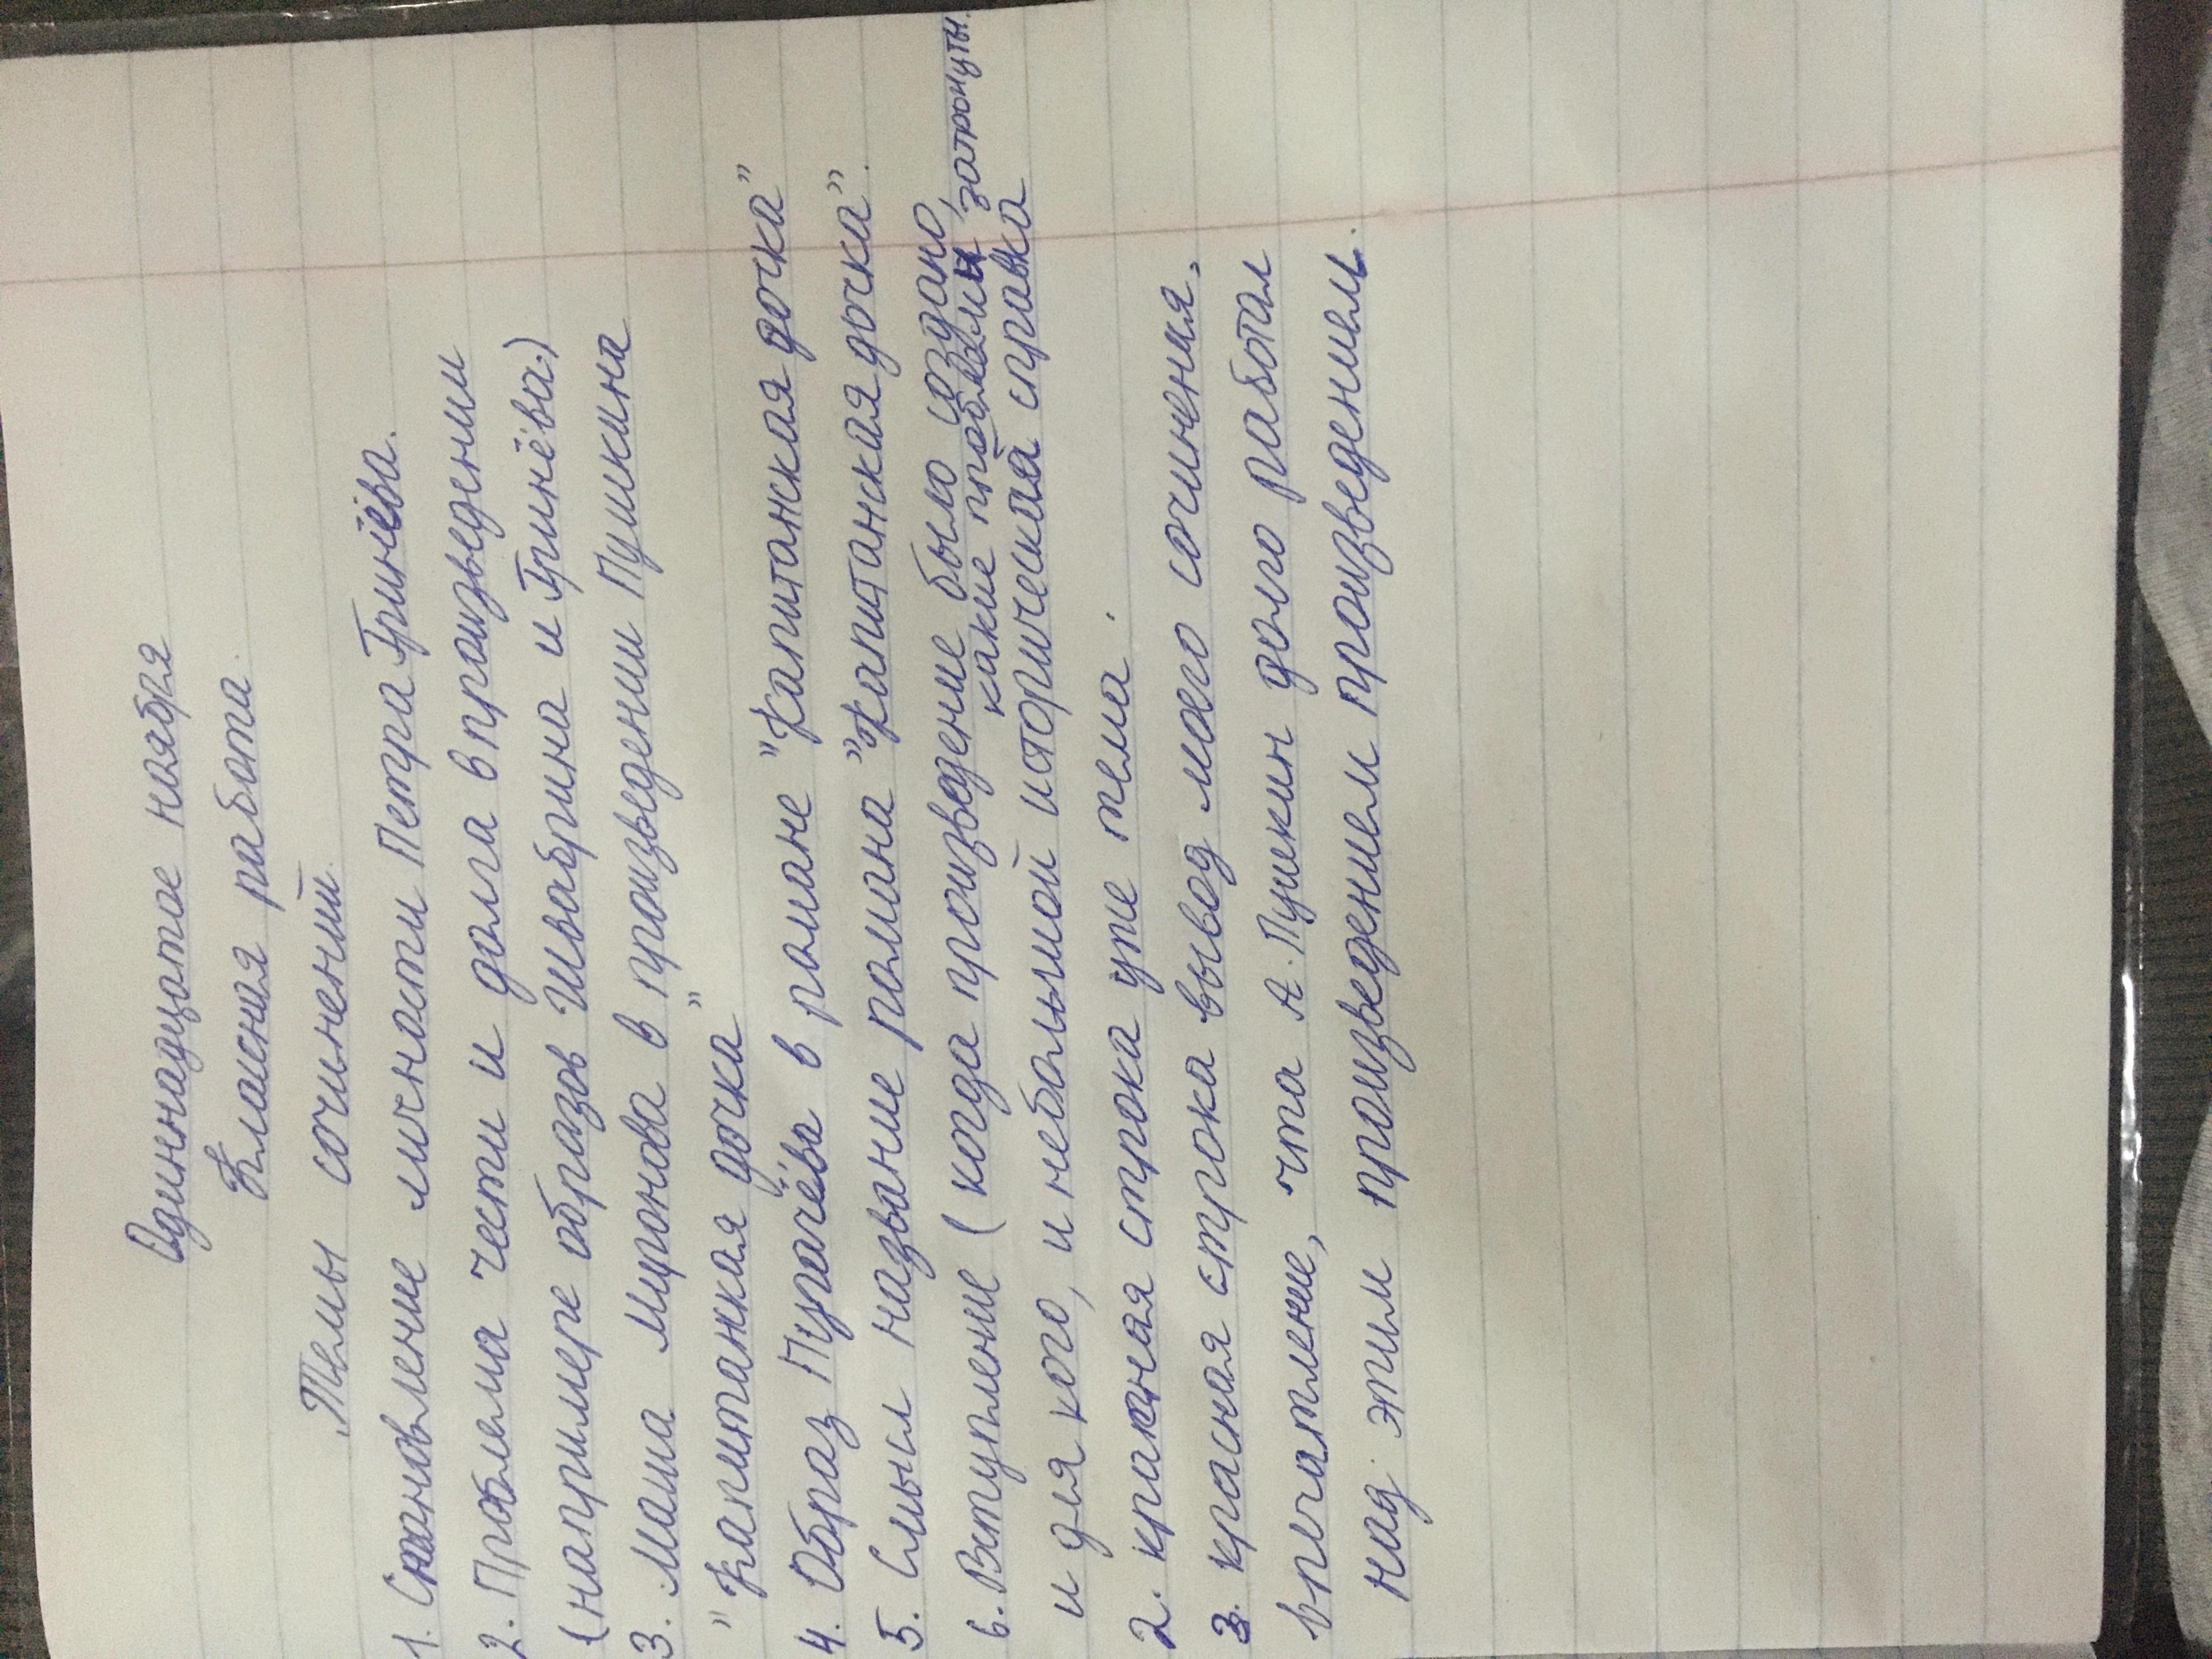 Одиннадцатое наября
Класная работа.
Темы сочинений
1. Становление личности Петра Гринёва.
2. Проблема чести и долга в произведении
(напримере образов Швабрина и Гринёва.)
3. Маша Миронова в произведении Пушкина
"Капитанкая дочка"
4. Образ Пугачёва в романе "Капитанская дочка"
5. Смысл название романа "Капитанская дочка".
6. Вступление (когда произведение было создано,
какие проблемы затронуты.
и для кого, и небольшой историческая справка
2. красная строка уже тема.
3. красная строка вывод моего сочинения.
впечатление, что А. Пушкин долго работал
над этим произведением произведением.